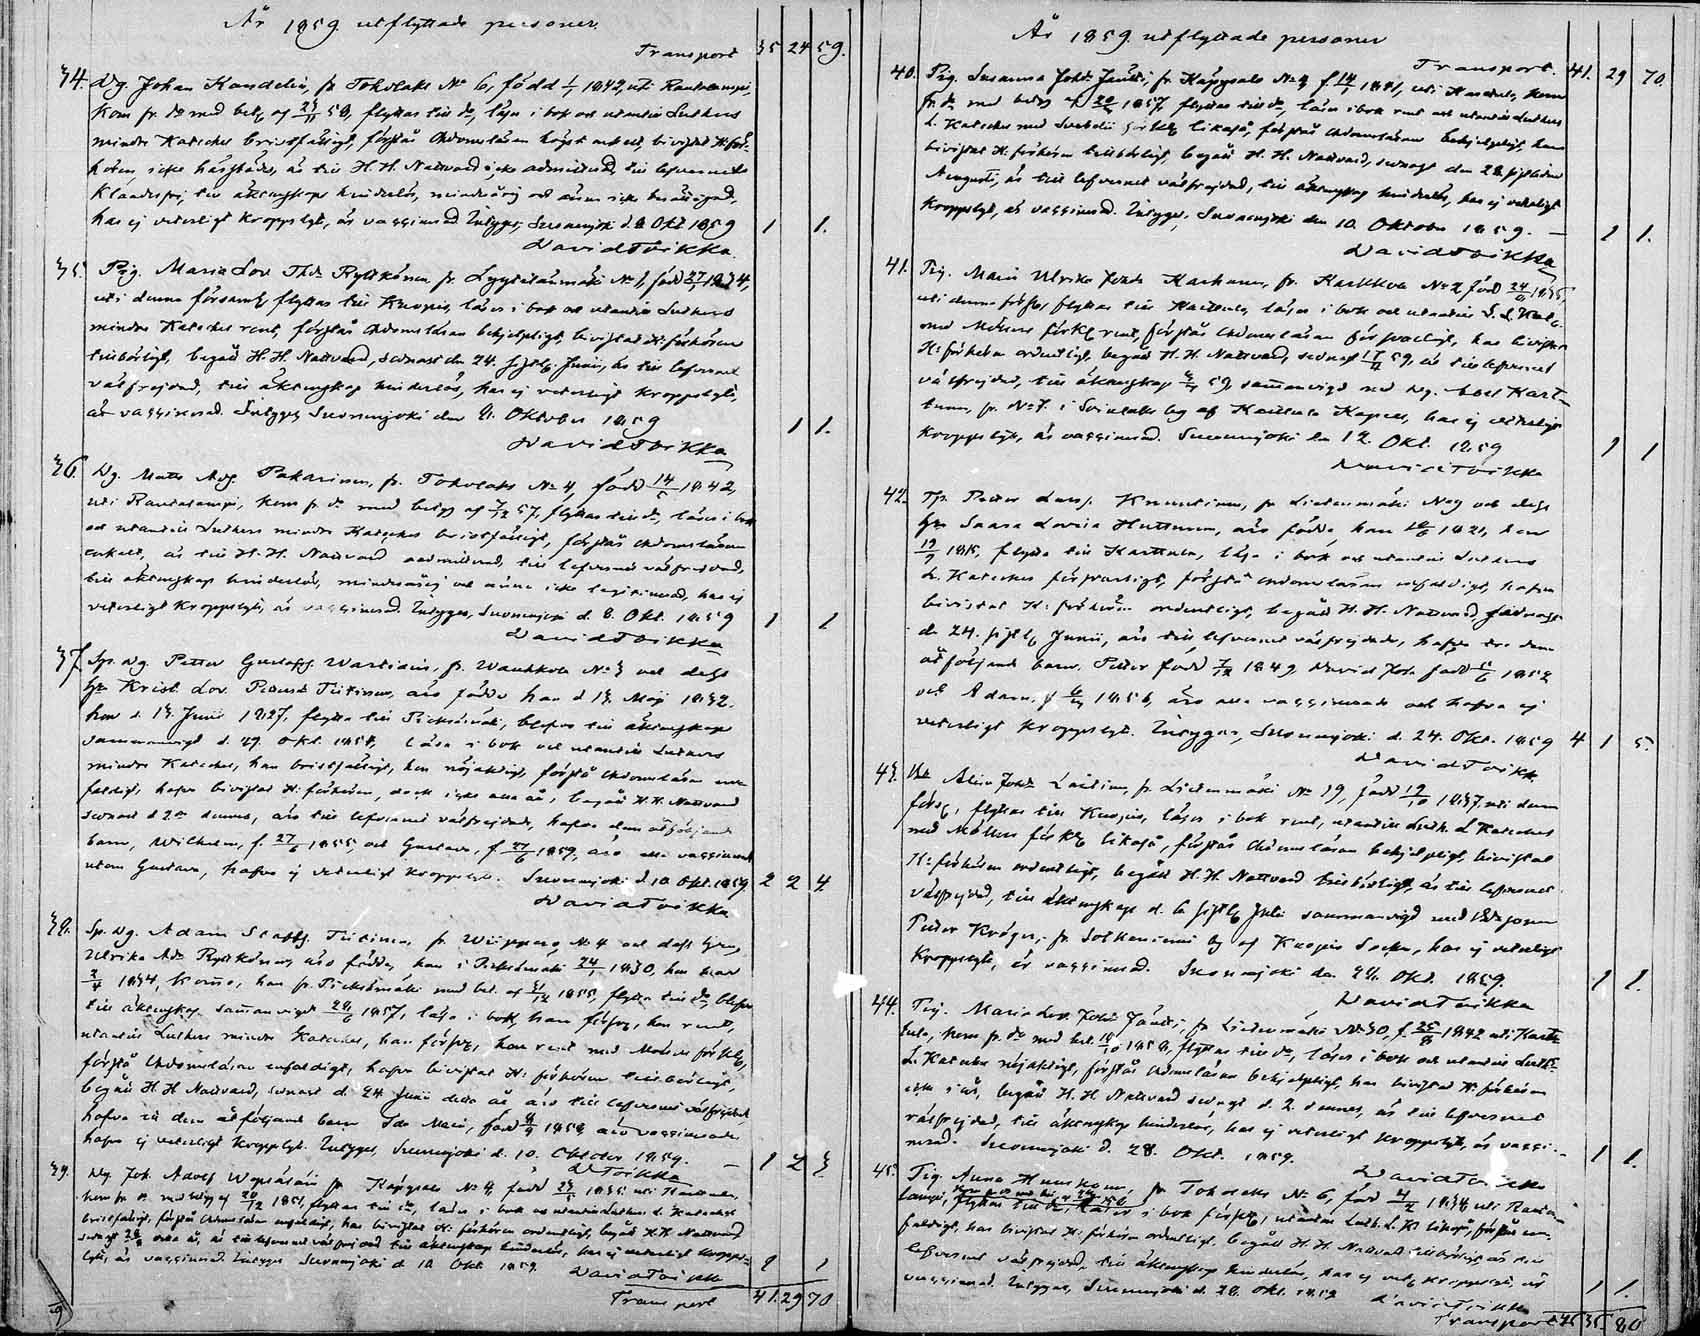 År 1859. utflyttade personer.
Transport 35 24 59.
34. Dg. Johan Kandelin, fr. Toholaks No 6, född 1/1 1842, uti Rautalampi,
kom fr. do med bet. af 58, flyttas till do, läser i bok och utantill Luthers
mindre Kateches bristfälligt, förstår Christendomsläran högst enkelt, bivistat K: för-
hören, icke, är till H.H. Nattvard icke admitterad, till lefvernet
klanderfri, till äktenskap hinderlös, minderårig och ännu icke
har ej veterligt kroppslyte, är vaccinerad. Intygar, Suonenjoki d. 8 Okt. 1859 1 1.
David Toikka.
35. Pig. Maria Lov. Thd. Rytkönen, fr. Lyytilänmäki No 1, född 27/ 1834,
uti denna församl. flyttas till Kuopio, läser i bok och utantill Luthers
mindre Kateches rent, förstår Christendomsläran behjelpligt, bivistat K: förhören
tillbörligt, begått H.H. Nattvard, sednast den 24. sistl. Junii, är till lefvernet
välfrejdad, till äktenskap hinderlös, har ej veterligt kroppslyte,
är vaccinerad. Intygar, Suonenjoki den 8. Oktober 1859 1 1.
David Toikka
36. Dg. Matts Adf. Pakarinen, fr. Toholaks No 4, född 14/5 1842,
uti Rautalampi, kom fr. do med betyg af 57, flyttas till do, läser i bok
och utantill Luthers mindre Kateches bristfälligt, förstår Christendomsläran
enkelt, är till H.H. Nattvard admitterad, till lefvernet välfrejdad,
till äktenskap hinderlös, minderårig och ännu icke legitimerad, har ej
veterligt kroppslyte, är vaccinerad. Intygar, Suonenjoki d. 8. Okt. 1859 1 1
David Toikka
37. Sp. Dg. Petter Gustafss. Wartiain, fr. Wauhkola No 3 och dess
hu Krist. Lov. Tiitinen, äro födde han d 13 Maj 1832.
hon d. 13. Junii 1827, flytta till Pieksämäki, blefvo till äktenskap
sammanvigd d. 29. Okt. 1854, läsa i bok och utantill Luthers
mindre Kateches, han bristfälligt, hon nöjaktigt, förstå Christendomsläran en-
faldigt, hafva bivistat K: förhören, dock icke alla år, begått H.H. Nattvard
sednast d 2 dennes, äro till lefvernet välfrejdade, hafva dem åtföljande
barn, Wilhelm, f. 27/6 1855, och Gustava, f. 27/6 1859, äro alla vaccinerade
utom Gustava, hafva ej veterligt kroppslyte. Suonenjoki d. 10 Okt. 1859 2 2 4.
David Toikka.
38. Sp. Dg. Adam Staffs. Tiitinen, fr. Wiipperö No 4 och dess hu,
Ulrika Ad. Rytkönen, äro födde, han i Pieksämäki 24/1 1830, hon här
2/4 1834, komne, han fr. Pieksämäki med bet. af 31/12 1855, flytta till do, blefvo
till äktenskap samanvigd 28/6 1857, läsa i bok, han försv., hon rent,
utantill Luthers mindre Kateches, han försv., hon rent med Möllers förkl.,
förstå Christendomsläran enfaldigt, hafva bivistat K: förhören tillbörligt,
begått H H Nattvard, sednast d. 24 Junii detta år äro till lefvernet välfrejdade,
hafva ett dem åtföljande barn Ida Maria, född 1858, äro vaccinerade,
hafva ej veterligt kroppslyte. Intygar, Suonenjoki d. 10. Oktober 1859. 1 2 3
D Toikka
39. Dg. Joh. Adolf fr. Käpysalo No 4, född 23/ 1835 uti Hankasalmi,
kom fr. do med betyg af 20/12 1851, flyttas till do, läser i bok och utantill Luthers L. Kateches
bristfälligt, förstår Christendomsläran enfaldigt, har bivistat K: förhören ordentligt, begått H.H. Nattvard
sednast detta år, är till lefvernet välfrejdad till äktenskap hinderlös, har ej veterligt kropps-
lyte, är vaccinerad. Intygar Suonenjoki d 10 Okt. 1859 1
David Toikka
Transport 41. 29 70
År 1859. utflyttade personer
Transport. 41. 29 70.
40. Pig. Susanna Joh. Jäntti, fr. Käpysalo No 4, f. 14/ 1841, uti Hankasalmi, kom
fr. do med betyg af 20/ 1857, flyttas till do, läser i bok rent och utantill Luthers
L. Kateches med Svebelii förkl. likaså, förstår Christendomsläran behjelpligt, har
bivistat K: förhören tillbörligt, begått H. H. Nattvard, sednast den 28. sistledne
Augusti, är till lefvernet välfrejdad, till äktenskap hinderlös, har ej veterligt
kroppslyte, är vaccinerad. Intygar, Suonenjoki den 10. Oktober 1859. 1 1.
David Toikka
41. Pig. Maria Ulrika Karhunen, fr. Karkkola No 2 född 24/ 1835,
uti denna förs., flyttas till Karttula, läser i bok och utantill L. L. Kat.
med Möllers förkl. rent, förstår Christendomsläran försvarligt, har bivistat
K: förhören ordentligt, begått H. H. Nattvard, sednast 59, är till lefvernet
välfrejdad, till äktenskap 59 samanvigd med Dg. Abel Kart-
tunen, fr. No 7. i by af Karttula Kapell, har ej veterligt
kroppslyte, är vaccinerad. Suonenjoki den 12. Okt. 1859 1 1
David Toikka
42. Tp. Petter Larss. Knuutinen, fr. Lietenmäki No 9 och dess
hu Saara Lovisa Huttunen, äro födda, han 1821, hon
19/9 1815, flytta till Karttula, läsa i bok och utantill Luthers
L. Kateches försvarligt, förstå Christendomsläran enfaldigt, hafva
bivistat K: förhören ordentligt, begått H. H. Nattvard sednast
d. 24. sistl. Junii, äro till lefvernet välfrejdade, hafva tre dem
åtföljande barn, Petter född 7/12 1849, David Joh. född 1852
och Adam, f. 1856, äro alla vaccinerade och hafva ej
veterligt kroppslyte. Intygar, Suonenjoki d. 24. Okt. 1859 4 1 5.
David Toikka
43. Alina Joh. Laitinen, fr. Lietenmäki No 19, född 19/10 1837, uti denna
förs., flyttas till Kuopio, läser i bok rent, utantill Luth. L Kateches
med Möllers förkl. likaså, förstår Christendomsläran behjelpligt, bivistat
K: förhören ordentligt, begått H.H. Nattvard tillbörligt, är till lefvernet
välfrejdad, till äktenskap d. 6 sistl. Julii sammanvigd med
Petter Kröger, fr. by af Kuopio Socken, har ej veterligt
kroppslyte, är vaccinerad. Suonenjoki den 28. Okt. 1859. 1 1.
David Toikka
44. Pig. Maria Lov. Joh. Jäntti, fr. Lietenmäki No 30, f. 25/8 1842 uti Kart-
tula, kom fr. do med bet. 1858, flyttas till do, läser i bok och utantill Luth.
L. Kateches nöjaktigt, förstår Christendomsläran behjelpligt, har bivistat K: förhören
icke i år, begått H. H. Nattvard sednast d. 2. dennes, är till lefvernet
välfrejdad, till äktenskap hinderlös, har ej veterligt kroppslyte, är vacci-
nerad. Suonenjoki d. 28. Okt. 1859. 1 1.
David Toikka
45. Pig. Anna Huuskonen, fr. Toholaks No 6, född 1834 uti Rauta-
lampi, flyttas till do, läser i bok försv., utantill Luth. L. K. likaså, förstår en-
faldigt, har bivistat K: förhören ordentligt, begått H. H. Nattvard tillbörligt, är till
lefvernet välfrejdad, till äktenskap hinderlös, har ej vet. kroppslyte, är
vaccinerad. Intygar, Suonenjoki d. 28. Okt. 1859 1 1.
David Toikka
Transport 45 35 80